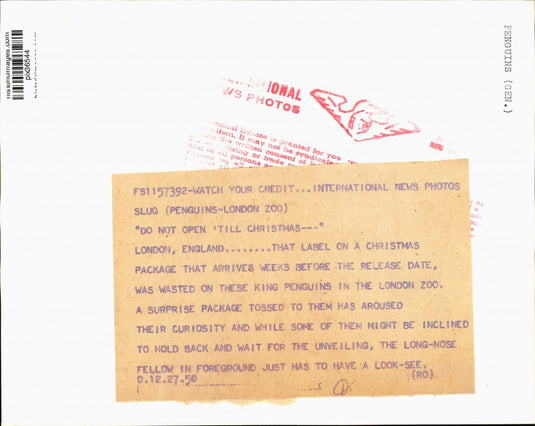 PENGUINS (GEN.)
NATIONAL
NEWS PHOTOS
FS1157392-WATCH YOUR CREDIT...INTERNATIONAL NEWS PHOTOS
SLUG (PENGUINS-LONDON ZOO)
"DO NOT OPEN 'TILL CHRISTMAS---"
LONDON, ENGLAND........THAT LABEL ON A CHRISTMAS
PACKAGE THAT ARRIVES WEEKS BEFORE THE RELEASE DATE,
WAS WASTED ON THESE KING PENGUINS IN THE LONDON ZOO.
A SURPRISE PACKAGE TOSSED TO THEM HAS AROUSED
THEIR CURIOSITY AND WHILE SOME OF THEM MIGHT BE INCLINED
TO HOLD BACK AND WAIT FOR THE UNVEILING, THE LONG-NOSE
FELLOW IN FOREGROUND JUST HAS TO HAVE A LOOK-SEE.
D.12.27.50 (RO)